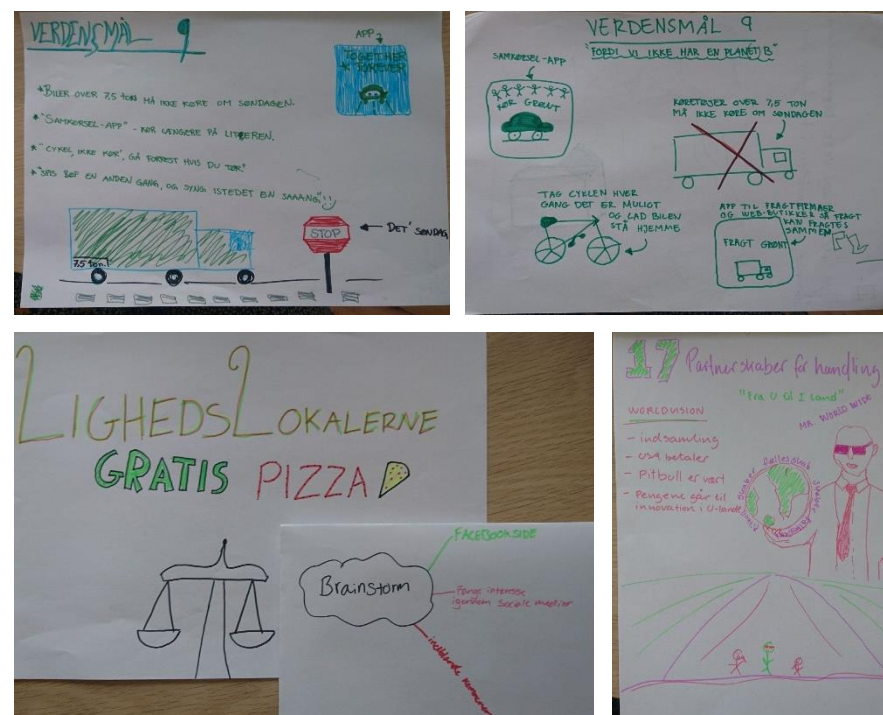 VERDENSMÅL 9
APP
TOGETHER
FOREVER
*BILER OVER 7,5 ton MÅ IKKE KØRE OM SØNDAGEN.
*"SAMKØRSEL-APP" - KØR LÆNGERE PÅ LITEREN.
*"CYKEL, IKKE KØR", GÅ FORREST HVIS DU TØR!
*"SPIS BØF EN ANDEN GANG, OG SYNG ISTEDET EN SAAANG"
7,5 ton
STOP
DET' SØNDAG
VERDENSMÅL 9
"FORDI VI IKKE HAR EN PLANET B"
SAMKØRSEL-APP
KØR GRØNT
KØRETØJER OVER 7,5 TON
MÅ IKKE KØRE OM SØNDAGEN
TAG CYKLEN HVER
GANG DET ER MULIGT
OG LAD BILEN
STÅ HJEMME
APP TIL FRAGTFIRMAER
OG WEB-BUTIKKER SÅ FRAGT
KAN FRAGTES
SAMMEN
FRAGT GRØNT
LIGHEDSLOKALERNE
GRATIS PIZZA
Brainstorm
FACEBOOKSIDE
Fange interesse
igennem sociale medier
indblande kommuner
17 Partnerskaber for handling
"Fra U til I land"
WORLDVISION
MR. WORLD WIDE
- indsamling
- USA betaler
- Pitbull er vært
- Pengene går til
innovation i U-lande